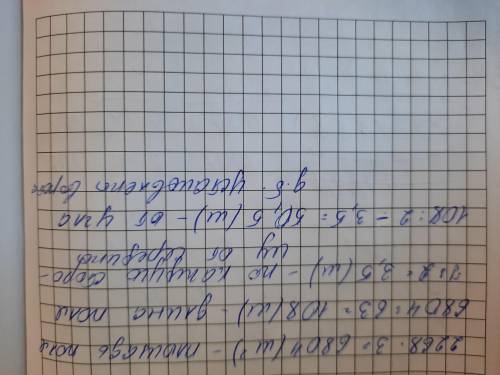 2268 · 3 = 6804 (м²) - площадь поля
6804 : 63 = 108 (м) - длина поля
7 : 2 = 3,5 (м) - по каждую сторо-
ну от середины
108 : 2 - 3,5 = 50,5 (м) - от угла
д.б. установлено ворота